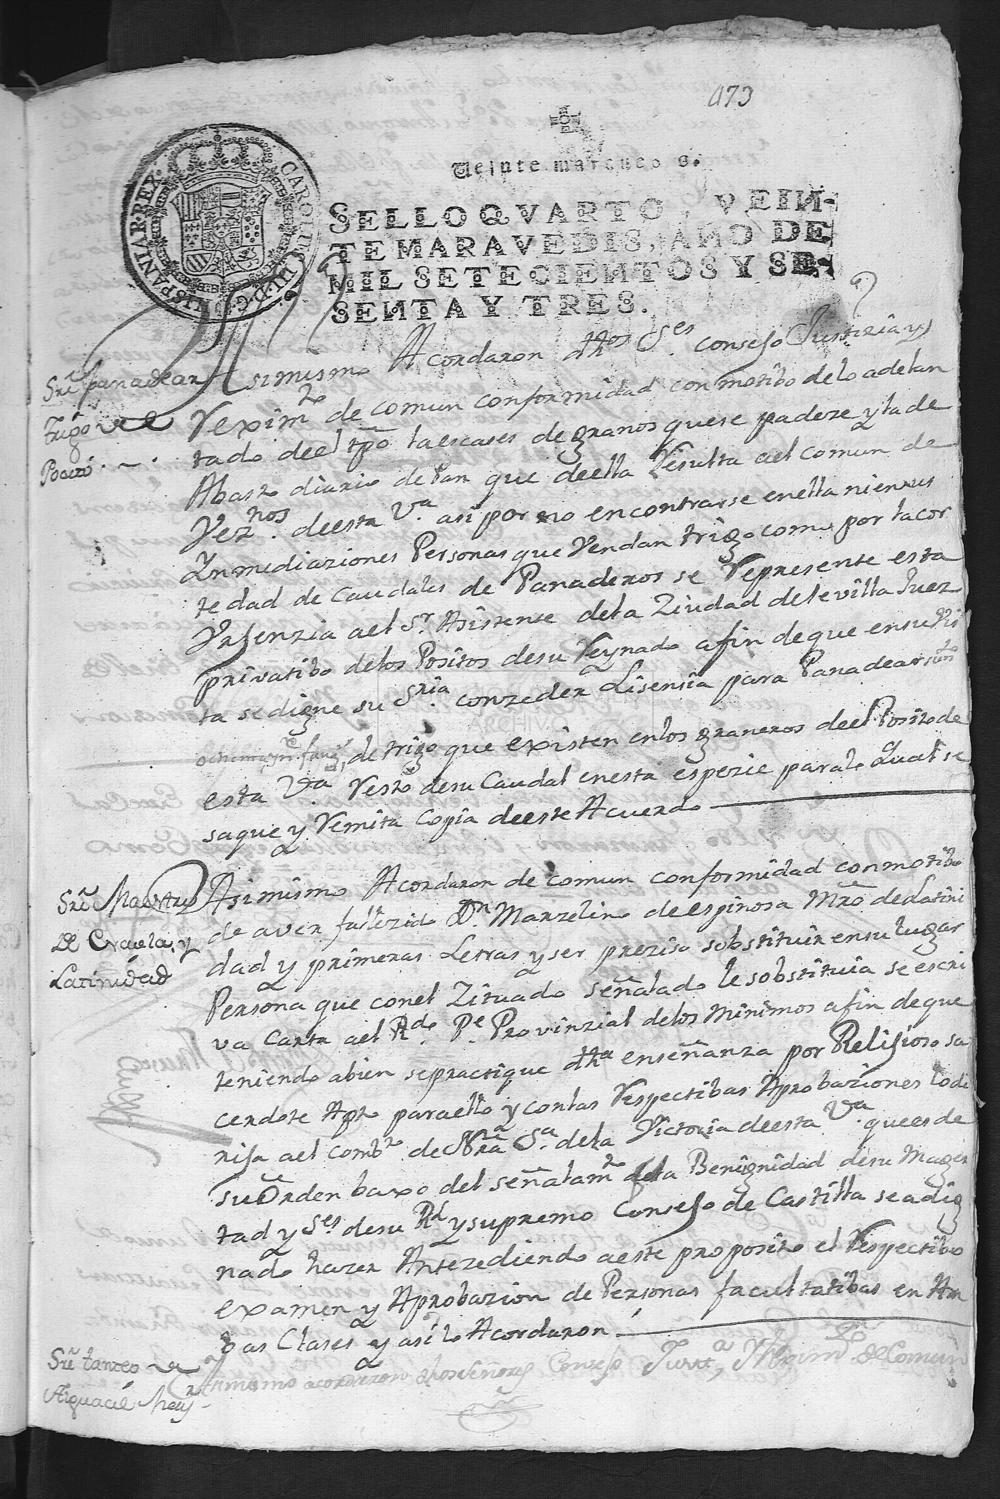 173
Veinte marauedis.
SELLO QVARTO, VEIN-
TE MARAVEDIS, AÑO DE
MIL SETECIENTOS Y SE-
SENTA Y TRES.
CAROLUS III. D. G. HISPANIAR. REX
Sre. panadear
trigo de el
Pocito
Asimismo Acordaron dhos Ses. Consejo Justizia y
Reximto. de comun conformidad con motibo de lo adelan
tado deel tpo. la escases de granos que se padeze y la de
Abasto diario de Pan que de ella Resulta ael Comun de
Vezos. de esta Va. asi por no encontrarse en ella ni en sus
Ynmediaziones Personas que Vendan trigo como por la cor
tedad de Caudales de Panaderos se Represente esta
Vrjenzia ael Sr. Asistente de la Ziudad de Sevilla Juez
privatibo de los Positos de su Reynado a fin de que en su vis
ta se digne su Sria. conzeder Lisensia para Panadear
de trigo que existen en los graneros de el Posito de
esta Va. Resto de su Caudal en esta espezie para lo qual se
saque y Remita Copia de este Acuerdo
Sre. Maestro
de Escuela, y
Latinidad
Asimismo Acordaron de comun conformidad con motibo
de aver fallezido Dn. Marzelino de espinosa Mro. de Latini
dad y primeras Letras y ser preziso sobstituir en su lugar
Persona que con el Zituado señalado le sobstituia se escri
va Carta ael Rdo. Pe. Provinzial de los Minimos a fin de que
teniendo a bien se practique dha enseñanza por Relijioso sa
cerdote Apto para ello y con las Respectibas Aprobaziones lo di
rija ael combto. de Nra Sa. de la Victoria de esta Va. que es de
su Orden baxo del señalamto. de la Benignidad de su Mages
tad y Ses. de su Rl. y supremo Consejo de Castilla se a dig
nado hazer Antezediendo a este proposito el Respectibo
examen y Aprobazion de Personas facultatibas en Am
bas Clases y asi lo Acordaron
Sre. tanteo de
Alguacil Mayr.
Asimismo acordaron dhos Señores Consejo Justa. y Reximto. de Comun